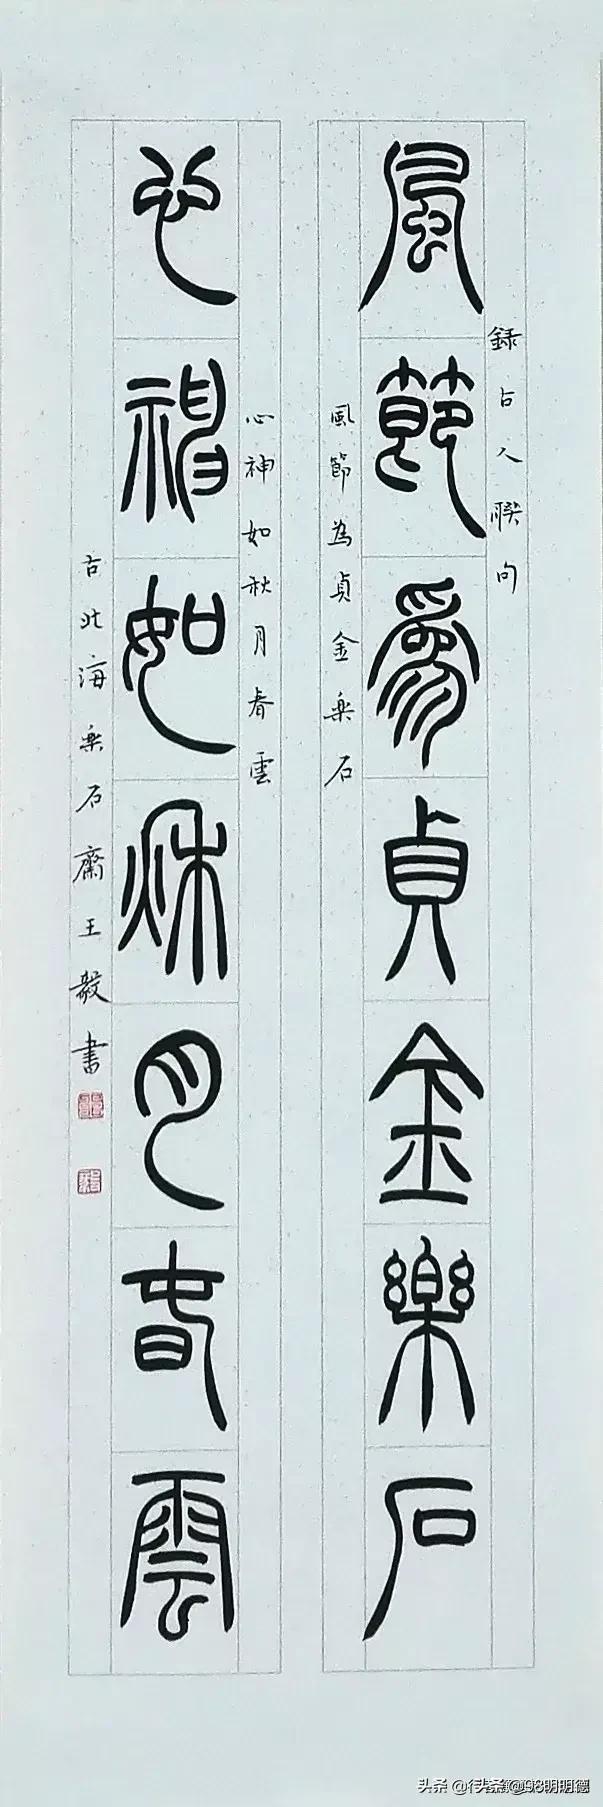 錄古人聯句
風節為貞金樂石
風節為貞金樂石
心神如秋月春雲
心神如秋月春雲
古北海樂石齋王毅書
头条 @98明明德